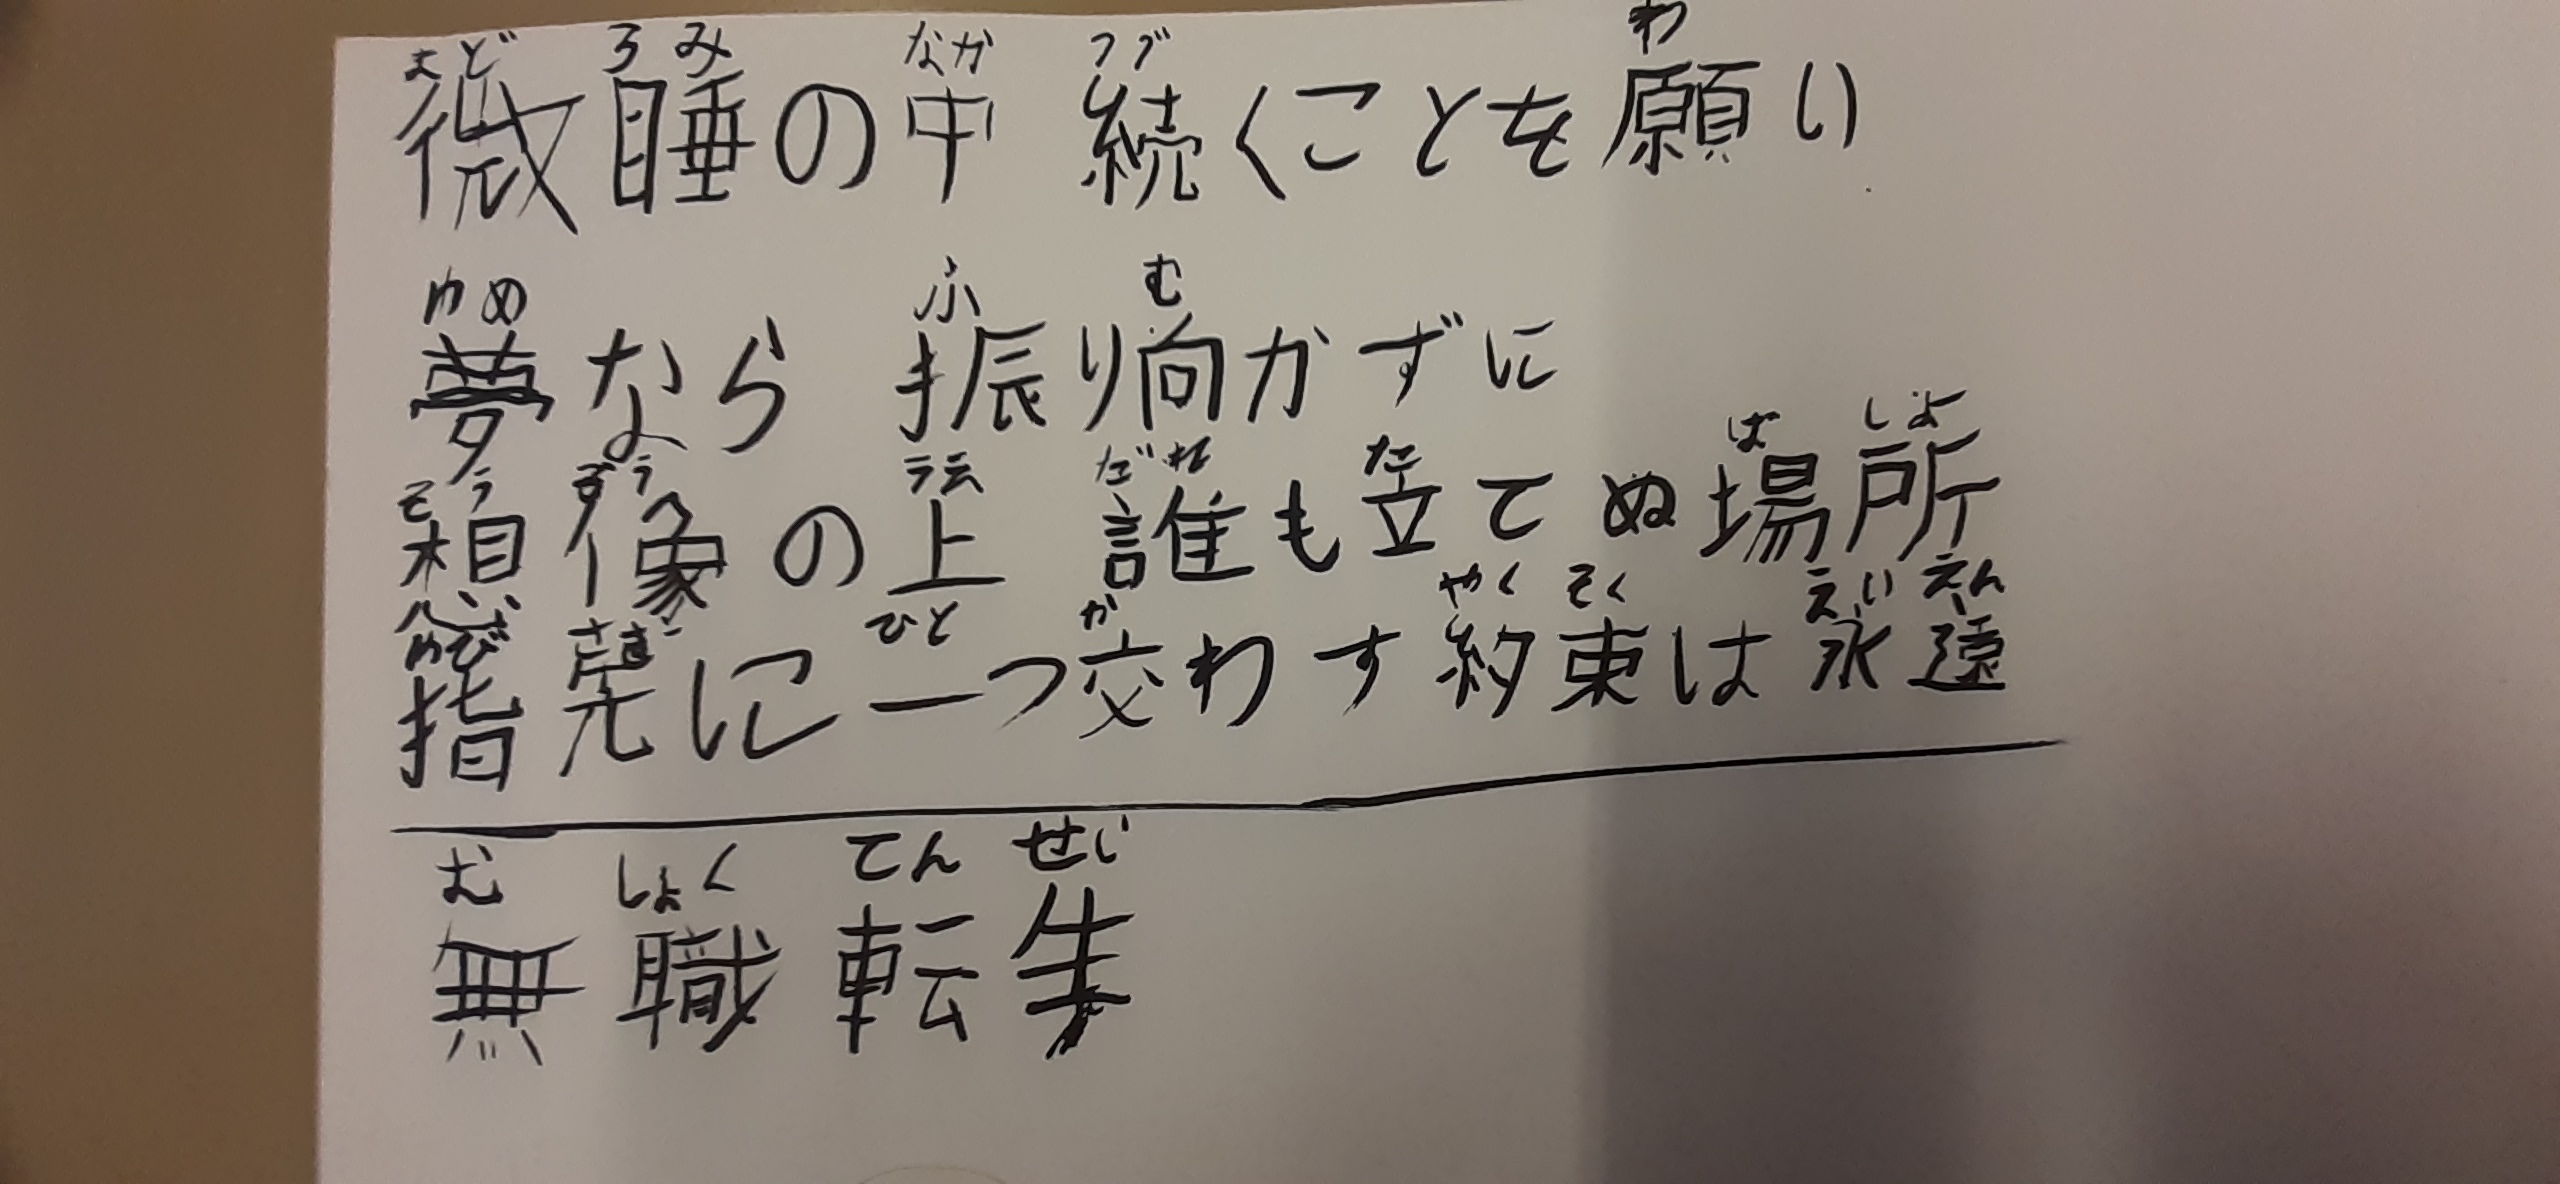 まどろみ なか つづ わ
微睡の中 続くことを願い
ゆめ ふ む
夢なら 振り向かずに
そうぞう うえ だれ た ばしょ
想像の上 誰も立てぬ場所
ゆびさき ひと か やくそく えいえん
指先に一つ交わす約束は永遠
む しょく てん せい
無職転生